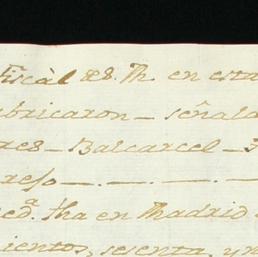 Fiscàl &8. Th. en esta
ubricaron_ señala
res_ Balcarcel_
reso_._._._
ed.ª fha en Madrid
ientos, sesenta, y n